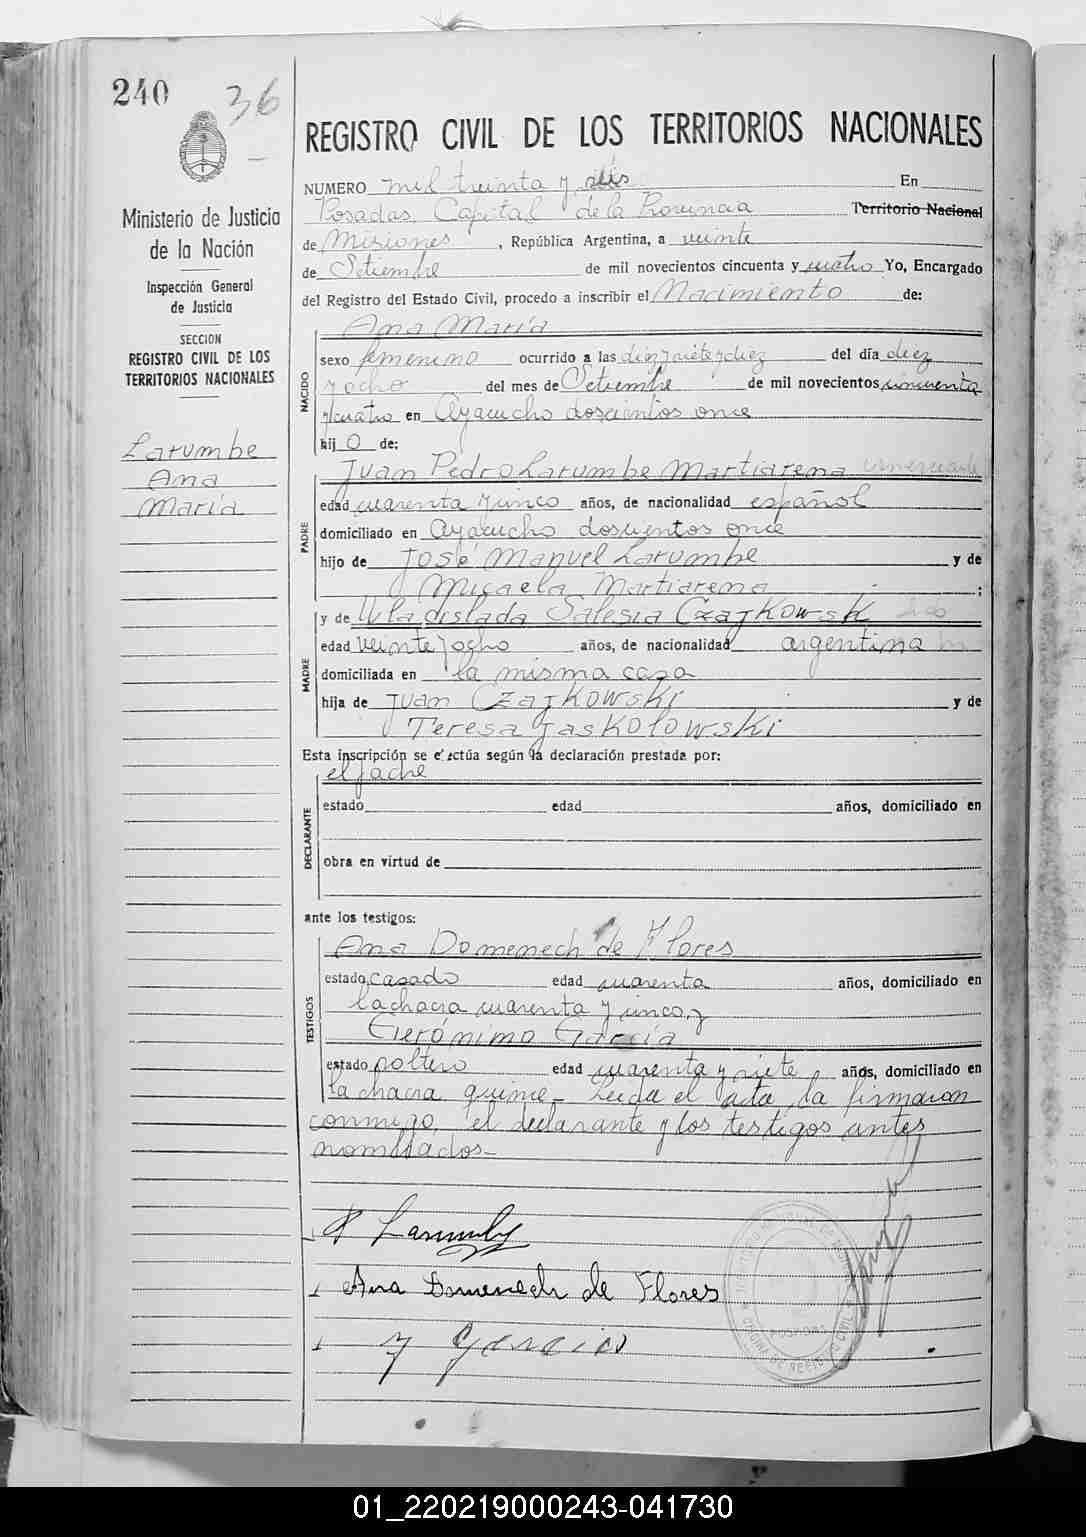 240 36
REGISTRO CIVIL DE LOS TERRITORIOS NACIONALES
Ministerio de Justicia
de la Nación
Inspección General
de Justicia
SECCION
REGISTRO CIVIL DE LOS
TERRITORIOS NACIONALES
Larumbe
Ana
María
NUMERO mil treinta y seis En
Posadas Capital de la Provincia Territorio Nacional
de Misiones, República Argentina, a veinte
de Setiembre de mil novecientos cincuenta y cuatro Yo, Encargado
del Registro del Estado Civil, procedo a inscribir el Nacimiento de:
NACIDO
Ana María
sexo femenino ocurrido a las diez y siete y diez del día diez
y ocho del mes de Setiembre de mil novecientos cincuenta
y cuatro en Ayacucho doscientos once
hijO de:
PADRE
Juan Pedro Larumbe Martiarena
edad cuarenta y cinco años, de nacionalidad español
domiciliado en Ayacucho doscientos once
hijo de José Manuel Larumbe y de
Micaela Martiarena;
MADRE
y de Uladislada Salesia Czajkowski
edad veinte y ocho años, de nacionalidad argentina
domiciliada en la misma casa
hija de Juan Czajkowski y de
Teresa Jaskolowski
Esta inscripción se efectúa según la declaración prestada por:
DECLARANTE
el padre
estado edad años, domiciliado en
obra en virtud de
ante los testigos:
TESTIGOS
Ana Domenech de Flores
estado casado edad cuarenta años, domiciliado en
la chacra cuarenta y cinco, y
Gerónimo García
estado soltero edad cuarenta y siete años, domiciliado en
la chacra quince - Leida el acta, la firmaron
conmigo, el declarante y los testigos antes
nombrados-
P Larumbe
Ana Domenech de Flores
J Garcia
POSADAS
01_220219000243-041730